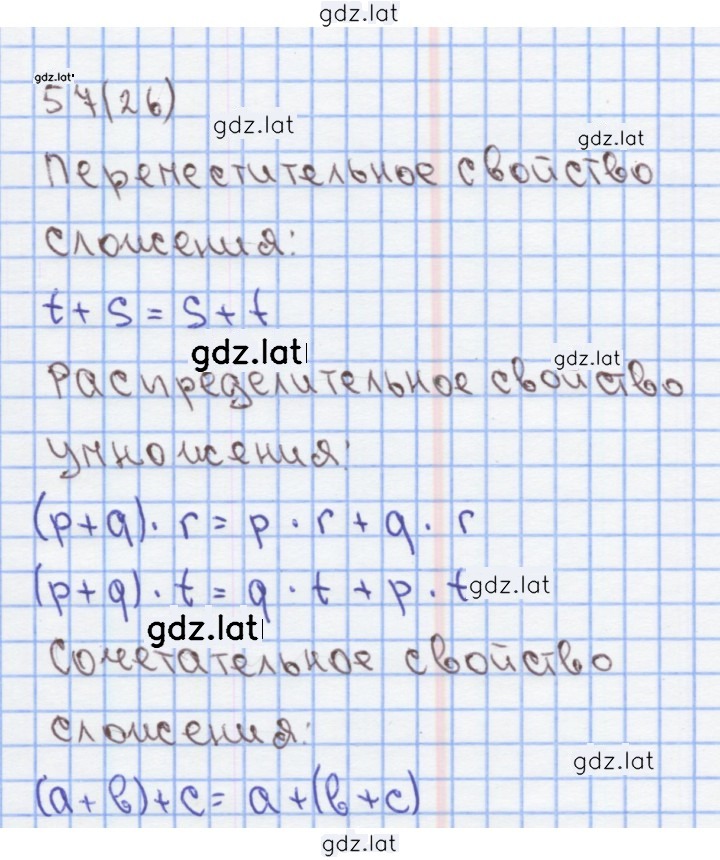 gdz.lat
gdz.lat
57(26)
gdz.lat
gdz.lat
Переместительное свойство
сложения:
t + s = s + t
gdz.lat
gdz.lat
Распределительное свойство
умножения:
(p + q) · r = p · r + q · r
(p + q) · t = q · t + p · t
gdz.lat
gdz.lat
Сочетательное свойство
сложения:
gdz.lat
(a + b) + c = a + (b + c)
gdz.lat